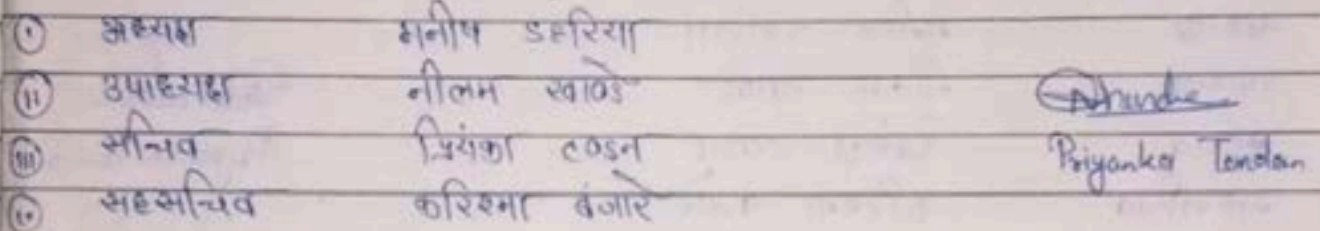 (i) अध्यक्ष मनीष डहरिया
(ii) उपाध्यक्ष नीलम खाण्डे
(iii) सचिव प्रियंका टण्डन Priyanka Tondan
(iv) सहसचिव करिश्मा बंजारे